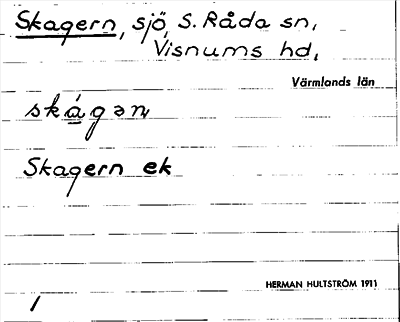 Skagern, sjö, S. Råda sn,
Visnums hd,
Värmlands län
skágən
Skagern ek
HERMAN HULTSTRÖM 1911
/